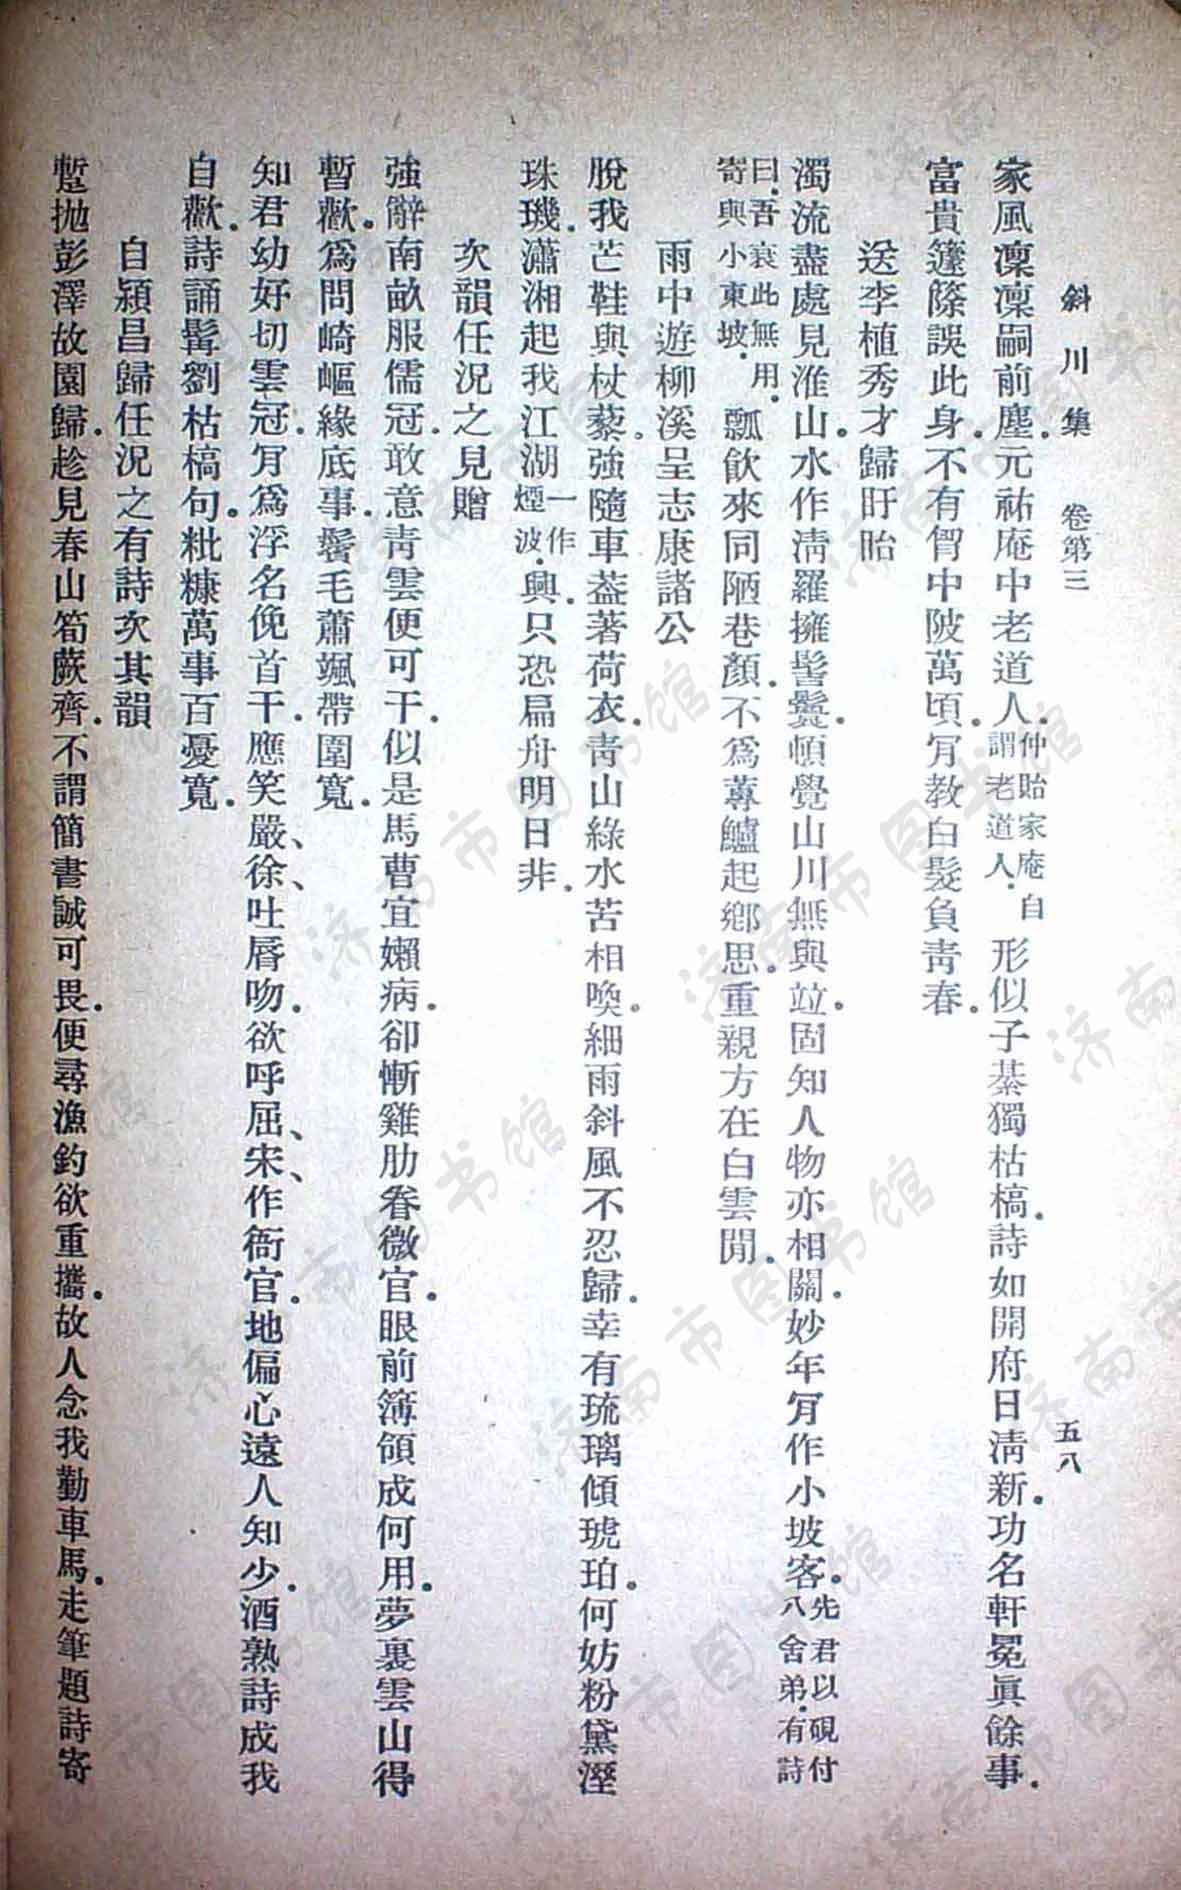 斜川集　卷第三　五八
家風凜凜嗣前塵．元祐庵中老道人．仲貽家庵自謂老道人．形似子綦獨枯槁．詩如開府日淸新．功名軒冕眞餘事．
富貴籧篨誤此身．不有胷中陂萬頃．肎教白髮負靑春．
送李植秀才歸盱眙
濁流盡處見淮山．水作淸羅擁髻鬟．頓覺山川無與竝．固知人物亦相關．妙年肎作小坡客．先君以硯付八舍弟．有詩
曰．吾衰此無用．寄與小東坡．瓢飮來同陋巷顏．不爲蓴鱸起鄕思．重親方在白雲閒．
雨中遊柳溪呈志康諸公
脫我芒鞋與杖藜．強隨車蓋著荷衣．靑山綠水苦相喚．細雨斜風不忍歸．幸有琉璃傾琥珀．何妨粉黛溼
珠璣．瀟湘起我江湖一作煙波．興．只恐扁舟明日非．
次韻任況之見贈
強辭南畝服儒冠．敢意靑雲便可干．似是馬曹宜嬾病．卻慚雞肋眷微官．眼前簿領成何用．夢裏雲山得
暫歡．爲問崎嶇緣底事．鬢毛蕭颯帶圍寬．
知君幼好切雲冠．肎爲浮名俛首干．應笑嚴、徐、吐唇吻．欲呼屈、宋、作衙官．地偏心遠人知少．酒熟詩成我
自歡．詩誦髯劉枯槁句．粃糠萬事百憂寬．
自潁昌歸任況之有詩次其韻
蹔拋彭澤故園歸．趁見春山筍蕨齊．不謂簡書誠可畏．便尋漁釣欲重攜．故人念我勤車馬．走筆題詩寄